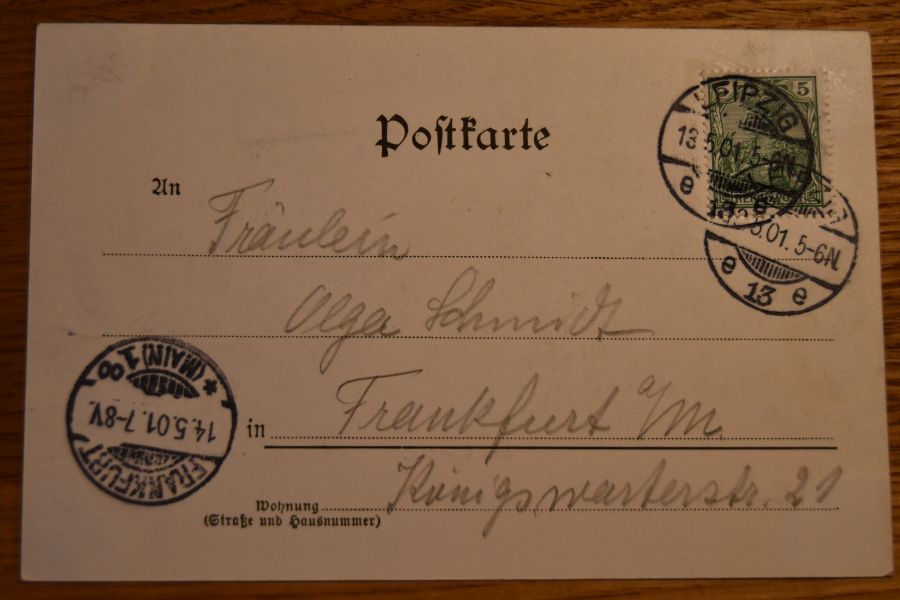 Postkarte
5
LEIPZIG
13.5.01. 5-6N.
e 13 e
5.01. 5-6N.
e 13 e
An
Fräulein
Olga Schmidt
in Frankfurt a/M.
Wohnung Königswarterstr. 21
(Straße und Hausnummer)
FRANKFURT
14.5.01. 7-8V.
* (MAIN) 1